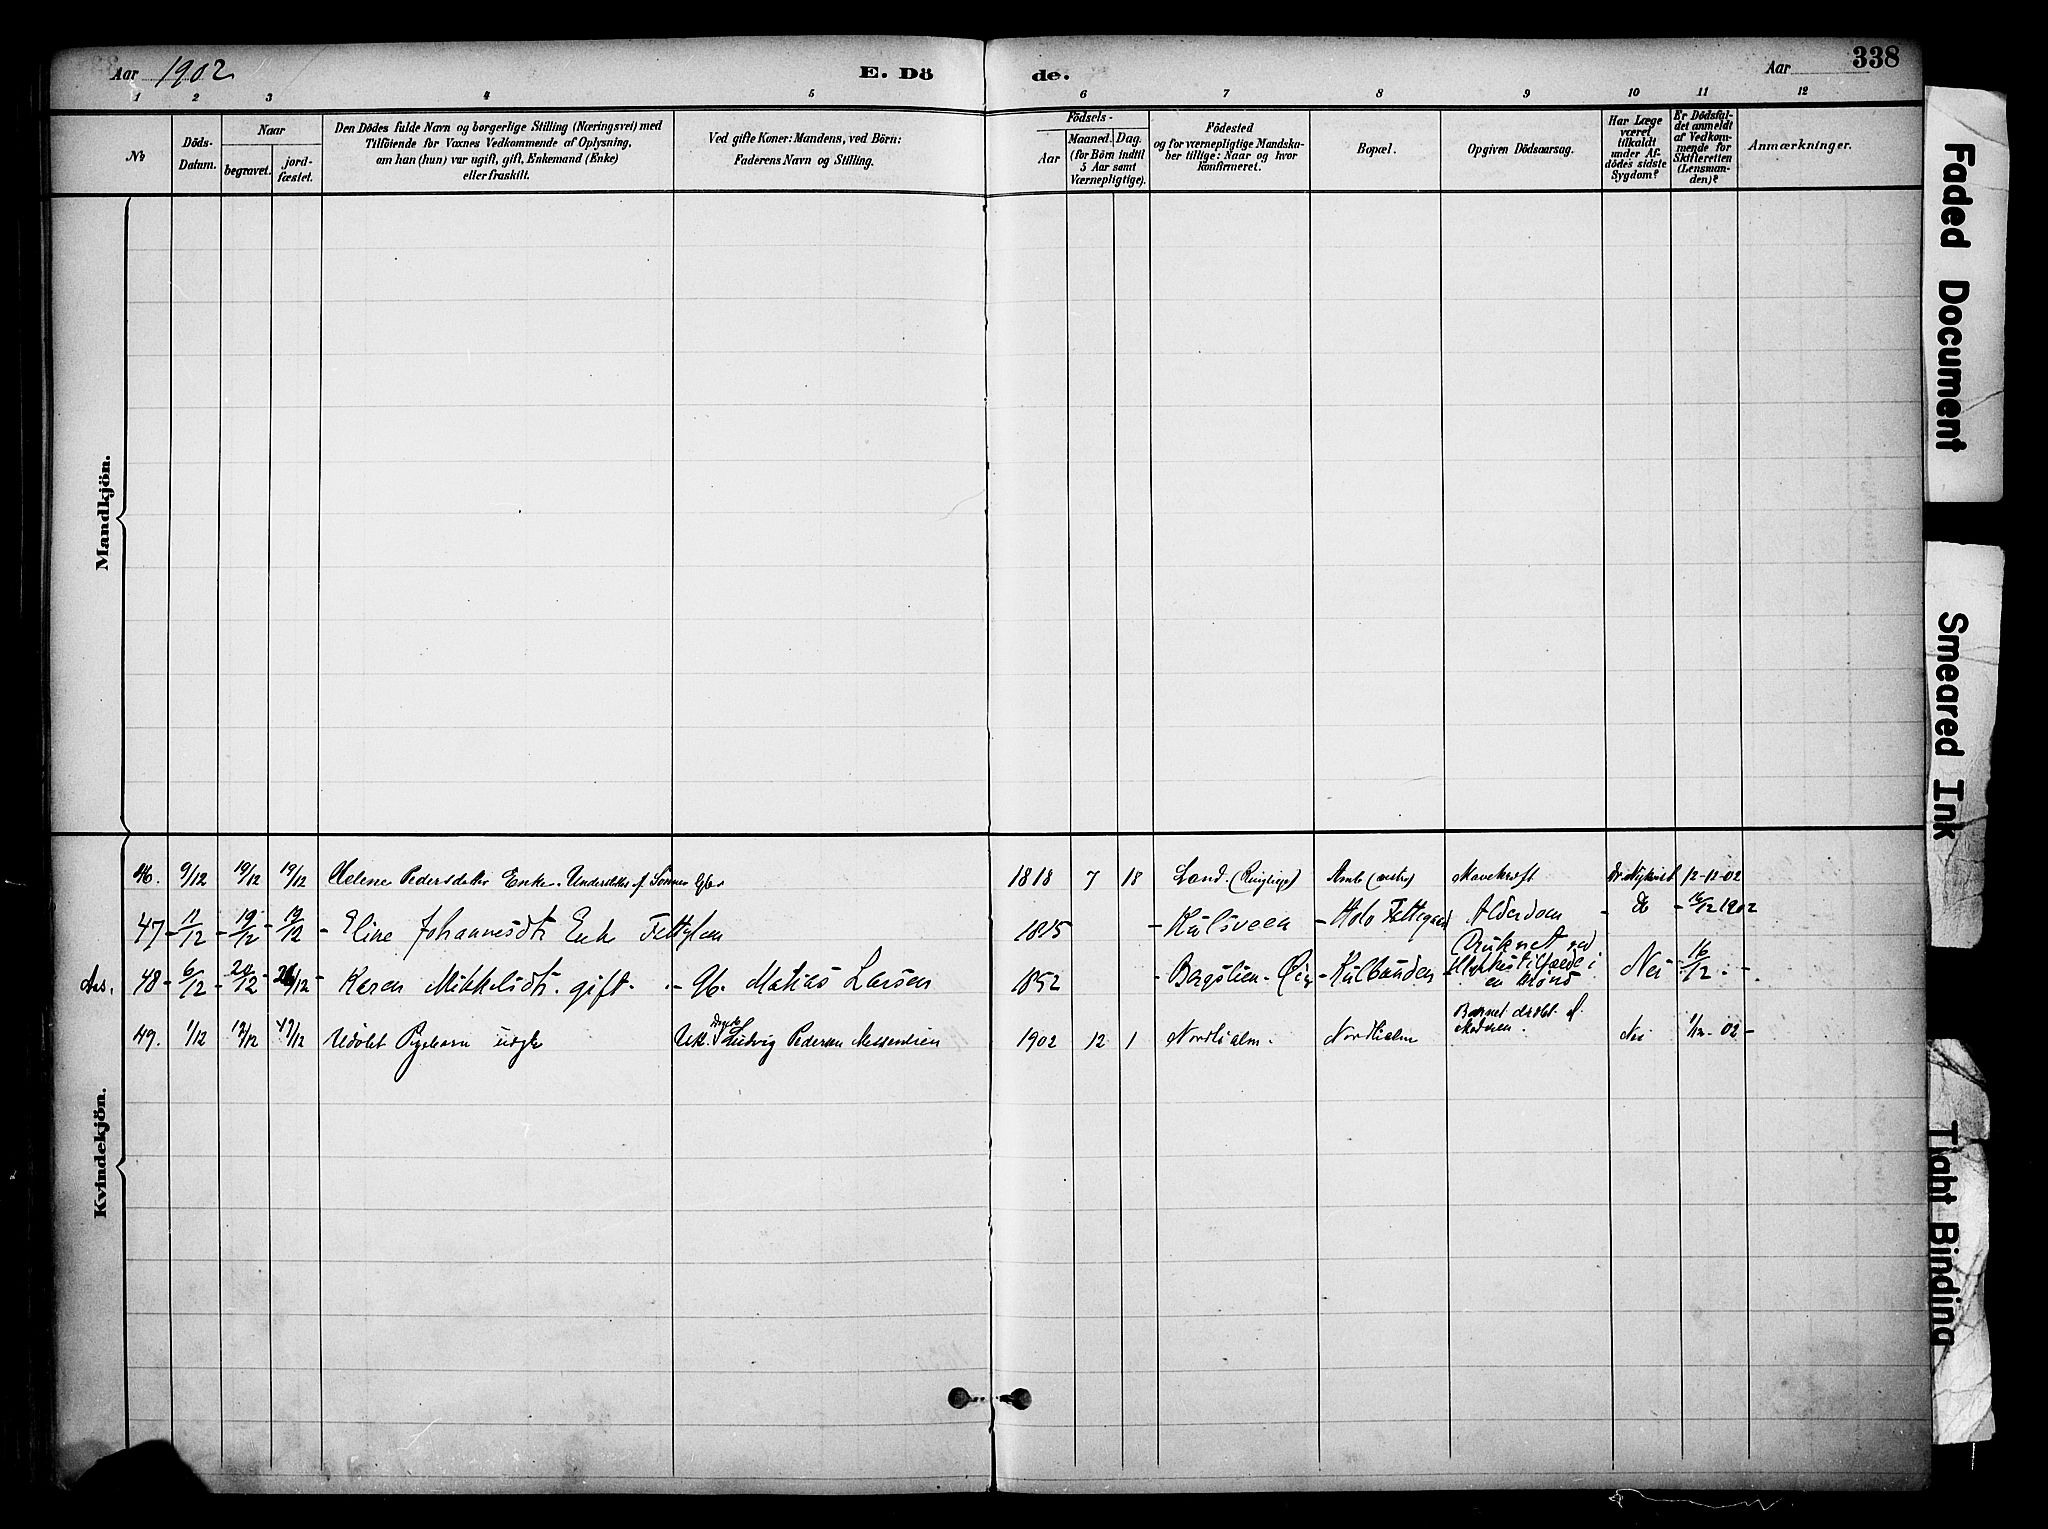 Aar 1902
E. Dö de.
Aar
338
1 2 3 4 5 6 7 8 9 10 11 12
No
Döds-Datum.
Naar
begravet.
jord-fæstet.
Den Dödes fulde Navn og borgerlige Stilling (Næringsvei) med
Tilföiende for Voxnes Vedkommende af Oplysning,
om han (hun) var ugift, gift, Enkemand (Enke)
eller fraskilt.
Ved gifte Koner: Mandens, ved Börn:
Faderens Navn og Stilling.
Födsels-
Aar
Maaned. Dag.
(for Börn indtil
5 Aar samt
Værnepligtige).
Födested
og for værnepligtige Mandska-
ber tillige: Naar og hvor
konfirmeret.
Bopæl.
Opgiven Dödsaarsag.
Har Læge
været
tilkaldt
under Af-
dödes sidste
Sygdom?
Er Dödsfal-
det anmeldt
af Vedkom-
mende for
Skifteretten
(Lensman-
den)?
Anmærkninger.
Mandkjön.
Kvindekjön.
46. 9/12 19/12 19/12 Helene Pedersdatter Enke. Understøttet af Sønnen 1818 7 18 Land Mavekræft 12-12-02
47 - 11/12 - 19/12 - 19/12 - Eline Johannesdtr Enke 1815 - Kulsveen - Alderdom - do - 16/12 1902
48 - 6/12 - 20/12 - /12 - Karen Mikkelsdtr. gift - Gb. Matias Larsen 1852 - Bergslien - - Kulbunden - Druknet ved Ulykkestilfælde i en Brønd Nei 16/12 -
49. 1/12 /12 /12 Udöbt Pigebarn Ludvig Pedersen 1902 12 1 Nordlialm Nordlialm Barnet dræbt af Moderen. Nei 1/12 - 02 -
Faded Document
Smeared Ink
Tight Binding